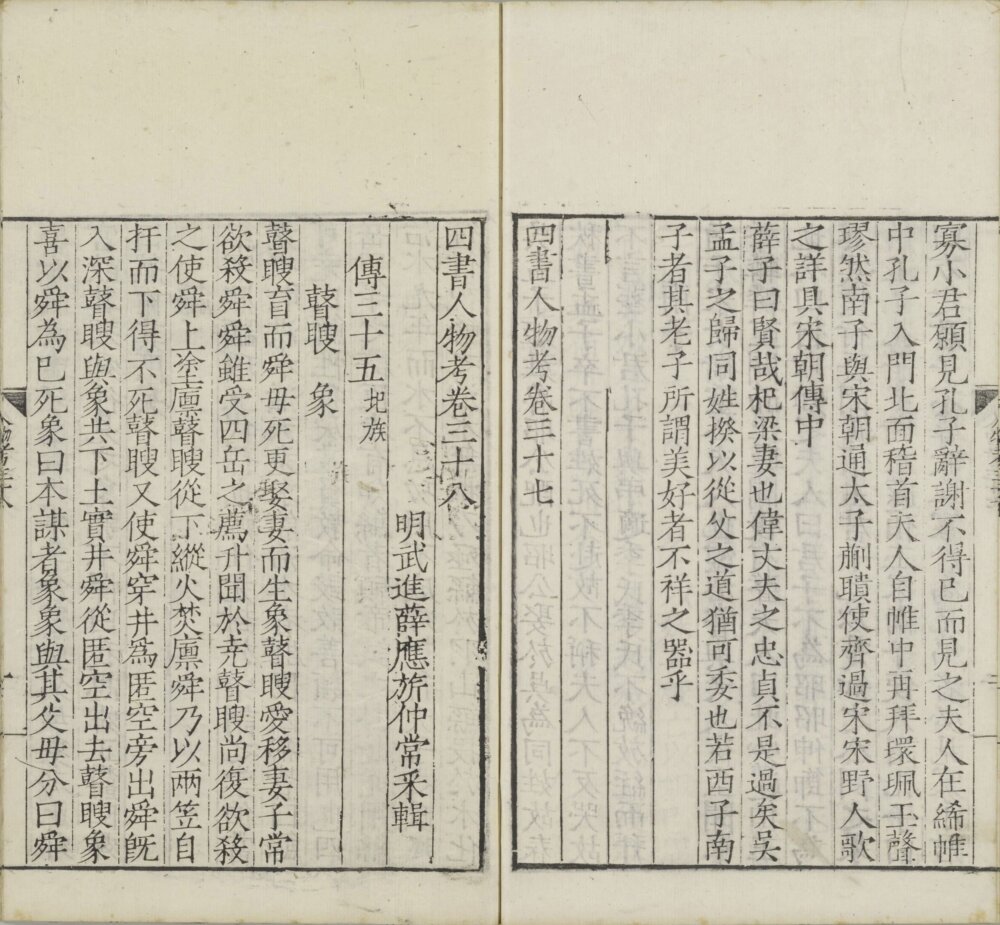 寡小君願見孔子辭謝不得已而見之夫人在絺帷
中孔子入門北面稽首夫人自帷中再拜環珮玉聲
璆然南子與宋朝通太子蒯聵使齊過宋宋野人歌
之詳具宋朝傳中
薛子曰賢哉杞梁妻也偉丈夫之忠貞不是過矣吳
孟子之歸同姓揆以從父之道猶可委也若西子南
子者其老子所謂美好者不祥之器乎
四書人物考卷三十七
四書人物考卷三十八
明武進薛應旂仲常釆輯
傳三十五圯族
瞽瞍 象
瞽瞍盲而舜母死更娶妻而生象瞽瞍愛移妻子常
欲殺舜舜雖受四岳之薦升聞於尭瞽瞍尚復欲殺
之使舜上塗廩瞽瞍從下縱火焚廩舜乃以兩笠自
扞而下得不死瞽瞍又使舜穿井爲匿空旁出舜旣
入深瞽瞍與象共下土實井舜從匿空出去瞽瞍象
喜以舜為已死象曰本謀者象象與其父母分曰舜